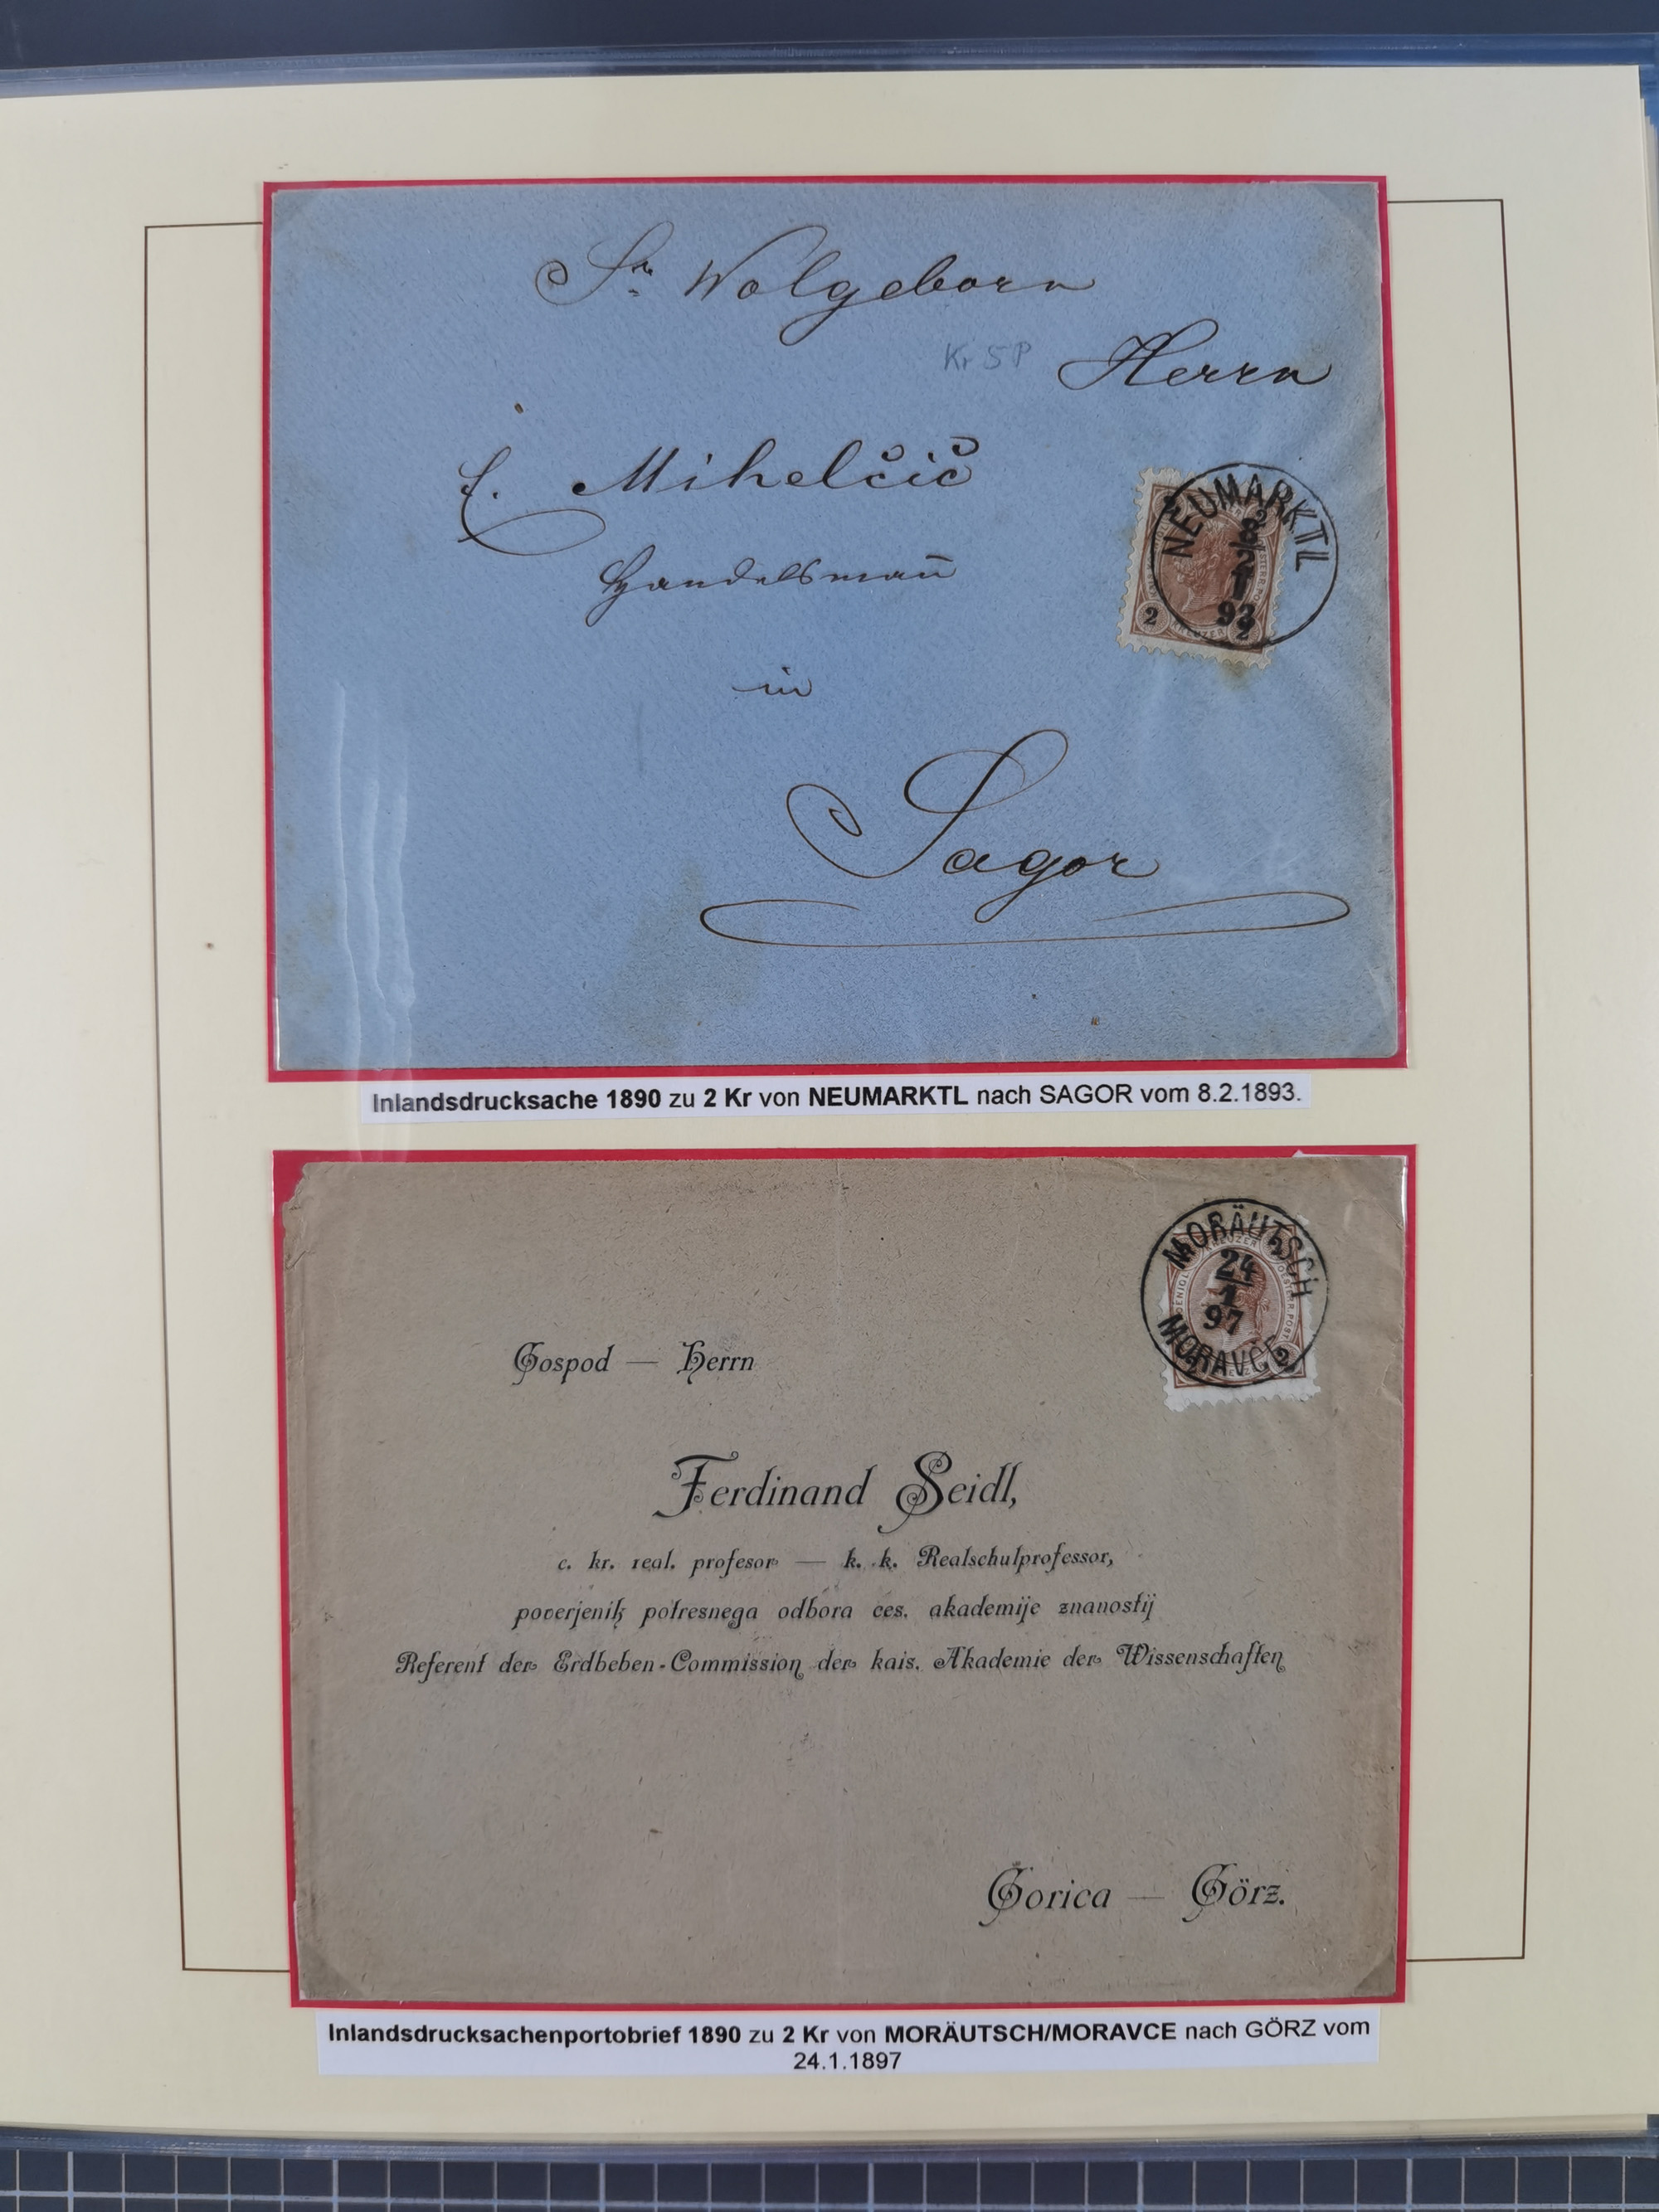 Sr. Wolgeborn
Kr 5P
Herrn
F. Mihelčič
Handelsmañ
in
Sagor
NEUMARKTL
8
2
93
2 KREUZER 2
Inlandsdrucksache 1890 zu 2 Kr von NEUMARKTL nach SAGOR vom 8.2.1893.
MORÄUTSCH
24
1
97
MORAVCE
2
Gospod — Herrn
Ferdinand Seidl,
c. kr. real. profesor — k. k. Realschulprofessor,
poverjenik potresnega odbora ces. akademije znanostij
Referent der Erdbeben-Commission der kais. Akademie der Wissenschaften
Gorica — Görz.
Inlandsdrucksachenportobrief 1890 zu 2 Kr von MORÄUTSCH/MORAVCE nach GÖRZ vom
24.1.1897